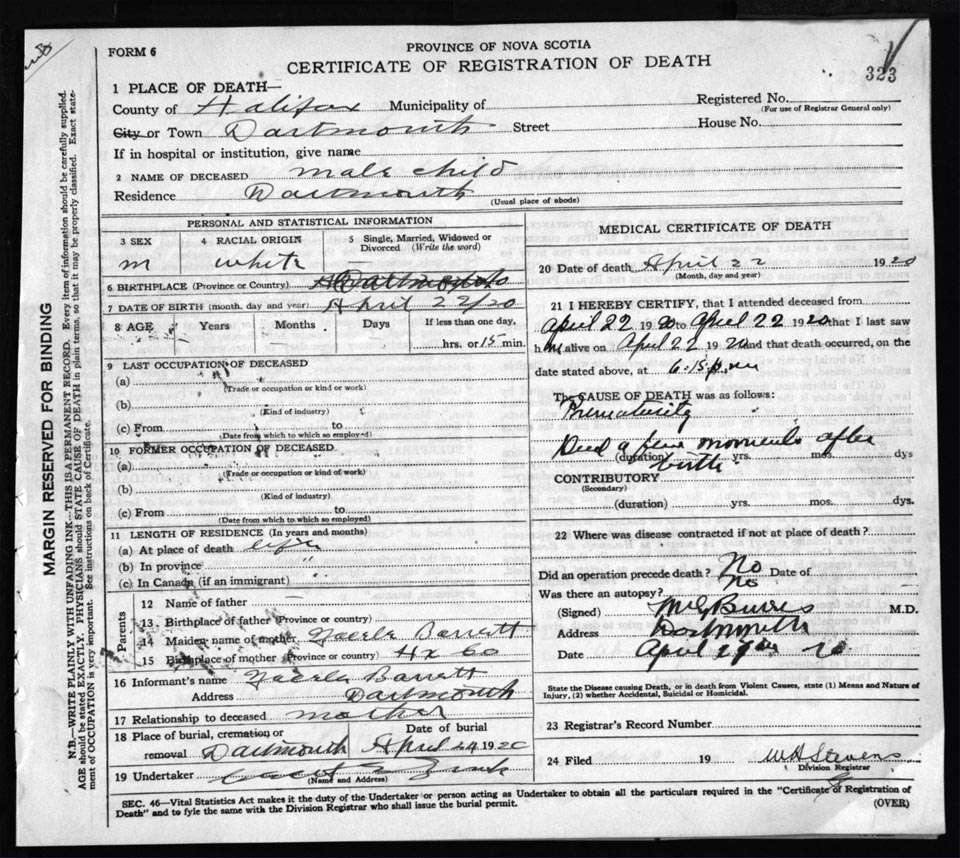 FORM 6
PROVINCE OF NOVA SCOTIA
CERTIFICATE OF REGISTRATION OF DEATH
323
1 PLACE OF DEATH—
County of Halifax Municipality of
Registered No.
(For use of Registrar General only)
City or Town Dartmouth Street
House No.
If in hospital or institution, give name
2 NAME OF DECEASED male child
Residence Dartmouth
(Usual place of abode)
PERSONAL AND STATISTICAL INFORMATION
3 SEX
m
4 RACIAL ORIGIN
white
5 Single, Married, Widowed or
Divorced (Write the word)
6 BIRTHPLACE (Province or Country) Dartmouth
7 DATE OF BIRTH (month, day and year) April 22/20
8 AGE Years Months Days If less than one day,
hrs. or 15 min.
9 LAST OCCUPATION OF DECEASED
(a)
(Trade or occupation or kind or work)
(b)
(Kind of industry)
(c) From to
(Date from which to which so employed)
10 FORMER OCCUPATION OF DECEASED
(a)
(Trade or occupation or kind of work)
(b)
(Kind of industry)
(c) From to
(Date from which to which so employed)
11 LENGTH OF RESIDENCE (In years and months)
(a) At place of death life
(b) In province "
(c) In Canada (if an immigrant) "
Parents
12 Name of father
13 Birthplace of father (Province or country)
14 Maiden name of mother Barrett
15 Birthplace of mother (Province or country) Hx Co
16 Informant's name Barrett
Address Dartmouth
17 Relationship to deceased mother
18 Place of burial, cremation or
removal Dartmouth
Date of burial
April 24 1920
19 Undertaker
(Name and Address)
MEDICAL CERTIFICATE OF DEATH
20 Date of death April 22 1920
(Month, day and year)
21 I HEREBY CERTIFY, that I attended deceased from
April 22 1920 to April 22 1920 that I last saw
him alive on April 22 1920 and that death occurred, on the
date stated above, at 6.15 p.m
The CAUSE OF DEATH was as follows:
Prematurity
Died a few moments after
birth
(duration) yrs. mos. dys
CONTRIBUTORY
(Secondary)
(duration) yrs. mos. dys.
22 Where was disease contracted if not at place of death?
Did an operation precede death? No Date of
Was there an autopsy? No
(Signed) M.D.
Address Dartmouth
Date April 29th 20
State the Disease causing Death, or in death from Violent Causes, state (1) Means and Nature of
Injury, (2) whether Accidental, Suicidal or Homicidal.
23 Registrar's Record Number
24 Filed 19 W H Stevens
Division Registrar
SEC. 46—Vital Statistics Act makes it the duty of the Undertaker or person acting as Undertaker to obtain all the particulars required in the "Certificate of Registration of
Death" and to fyle the same with the Division Registrar who shall issue the burial permit.
(OVER)
MARGIN RESERVED FOR BINDING
N.B.—WRITE PLAINLY WITH UNFADING INK—THIS IS A PERMANENT RECORD. Every item of information should be carefully supplied.
AGE should be stated EXACTLY. PHYSICIANS should STATE CAUSE OF DEATH in plain terms, so that it may be properly classified. Exact state-
ment of OCCUPATION is very important. See instructions on back of Certificate.